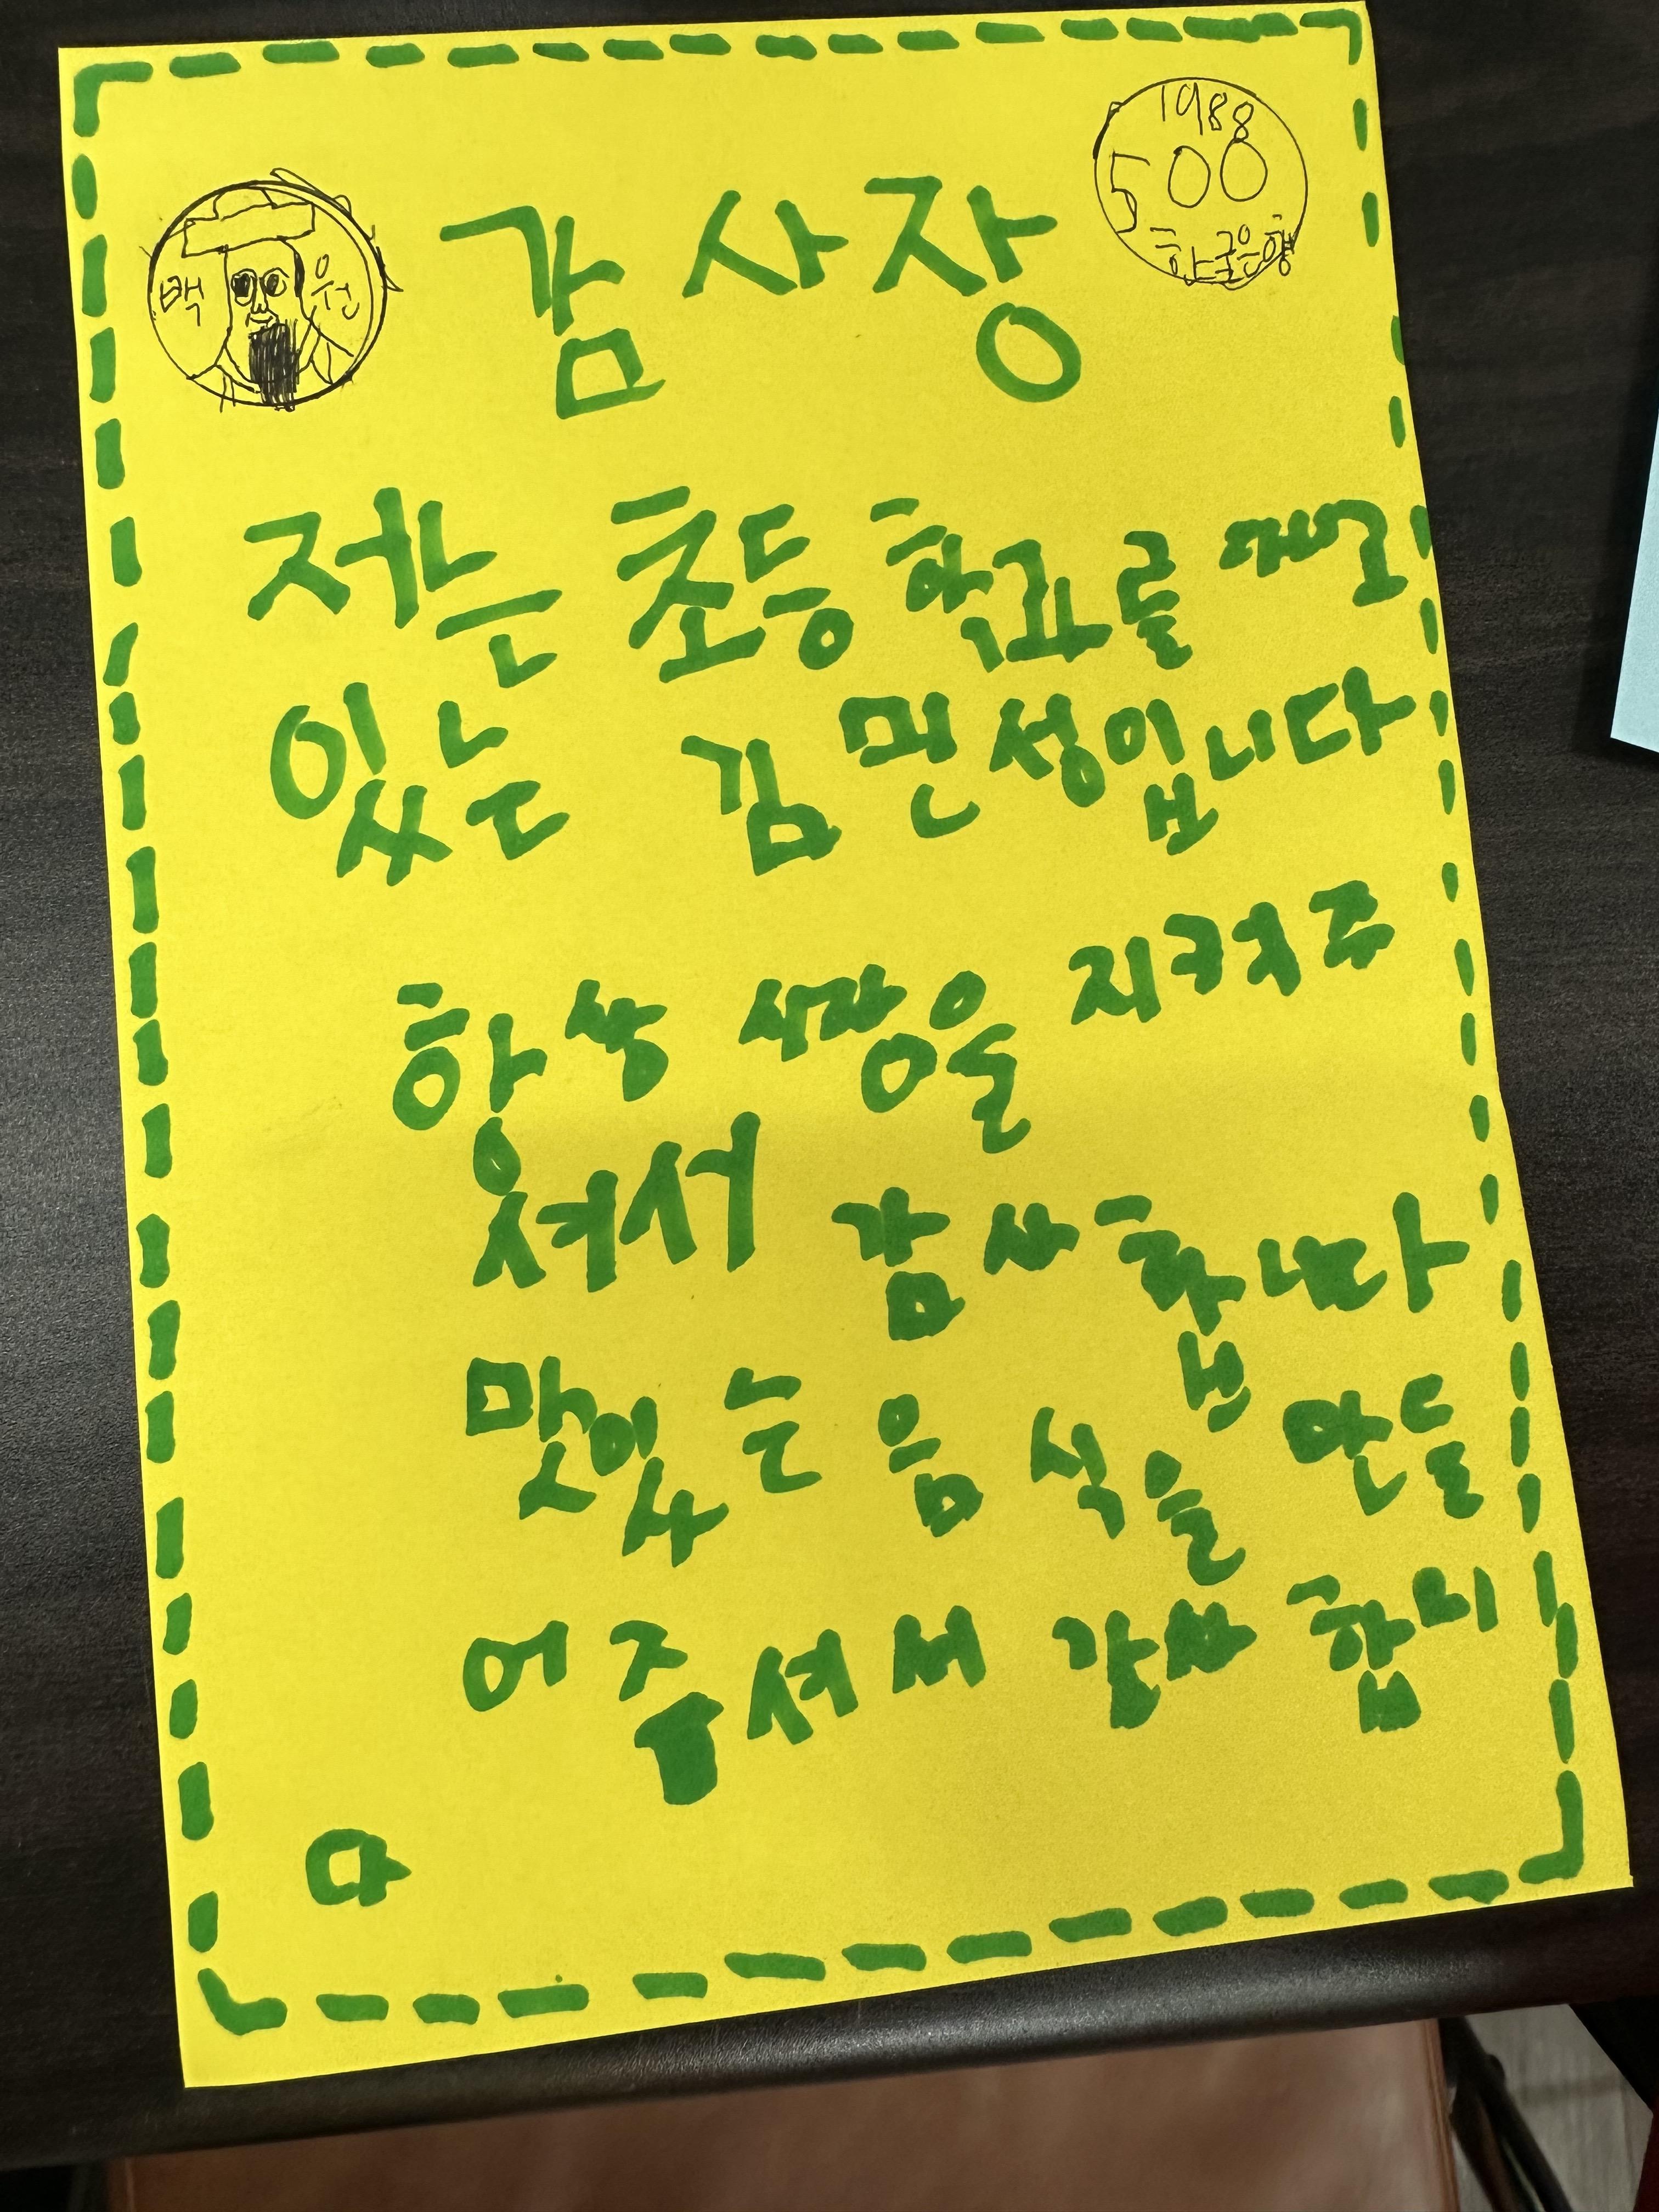 1988
500
한국은행
백 원
감사장
저는 초등 학교를
있는 김민성입니다
항상 시장을 지켜주
셔서 감사합니다
맛있는 음식을 만들
어주셔서 감사합니
다